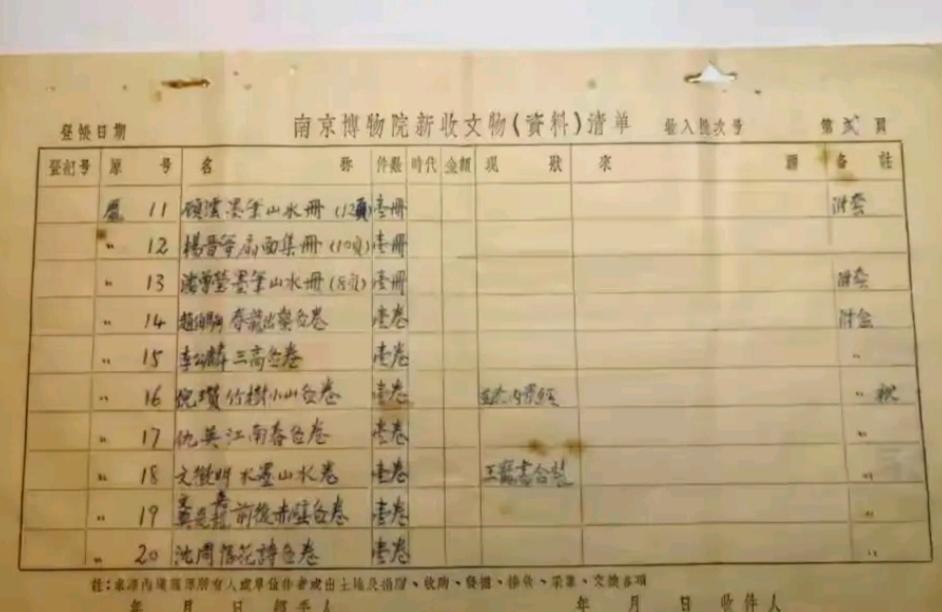 登帳日期 南京博物院新收文物(資料)清单 收入批次号 第 弍 頁
登記号 原 号 名 称 件数 時代 金額 現 狀 來 源 备 註
龐 11 顧澐墨笔山水冊 (12頁) 壹冊 附套
〃 12 楊晋等扇面集冊 (10頁) 壹冊
〃 13 潘曾瑩墨笔山水冊 (8頁) 壹冊 附套
〃 14 趙伯駒 春龍出蟄色卷 壹卷 附盒
〃 15 李公麟 三高色卷 壹卷 〃
〃 16 倪瓚 竹樹小山色卷 壹卷 〃
〃 17 仇英 江南春色卷 壹卷 〃
〃 18 文徵明 水墨山水卷 壹卷 王寵書合装 〃
〃 19 前後赤壁色卷 壹卷 〃
〃 20 沈周落花詩色卷 壹卷 〃
註:來源内填寫原所有人或單位作者或出土地及捐贈、收購、發掘、接收、采集、交換各項
年 月 日 經手人 年 月 日 收件人